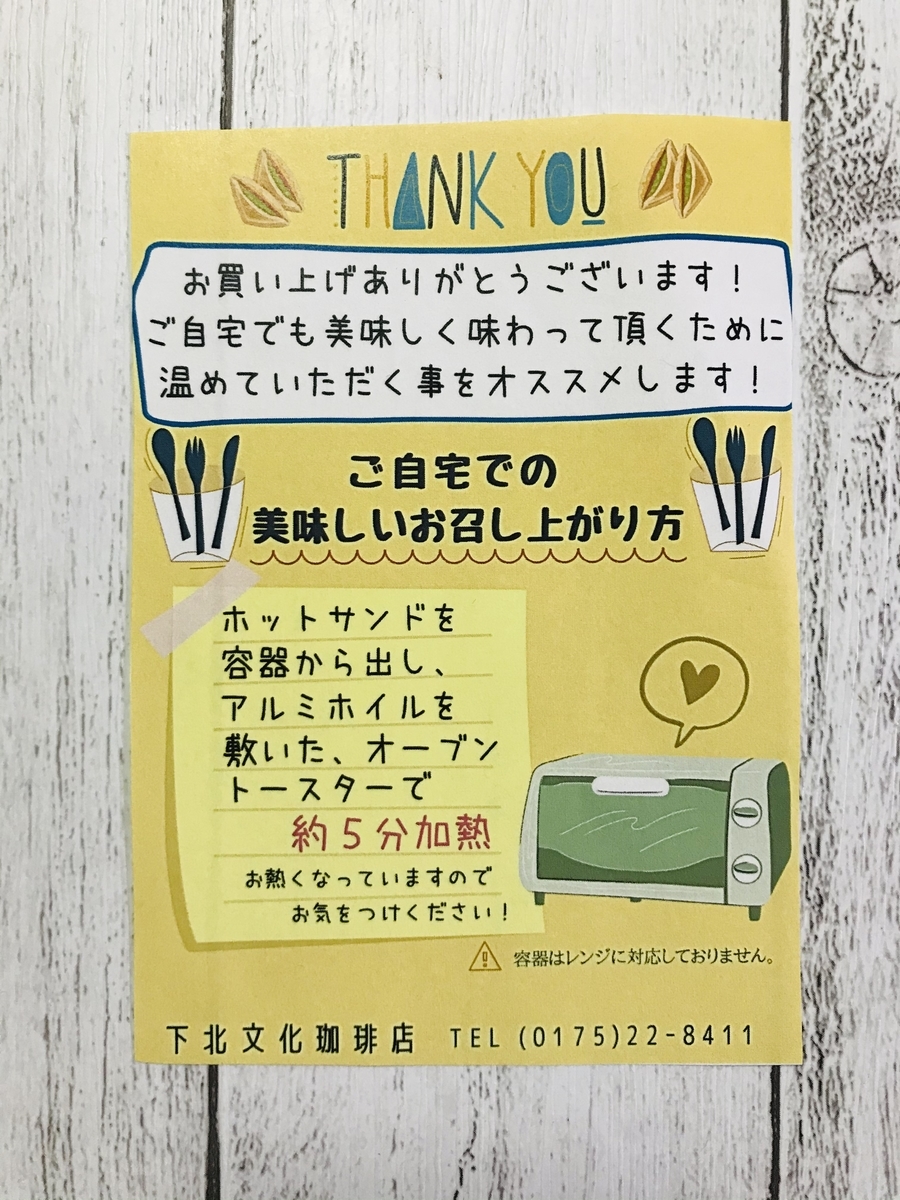 THANK YOU
お買い上げありがとうございます!
ご自宅でも美味しく味わって頂くために
温めていただく事をオススメします!
ご自宅での
美味しいお召し上がり方
ホットサンドを
容器から出し、
アルミホイルを
敷いた、オーブン
トースターで
約5分加熱
お熱くなっていますので
お気をつけください!
容器はレンジに対応しておりません。
下北文化珈琲店 TEL (0175)22-8411